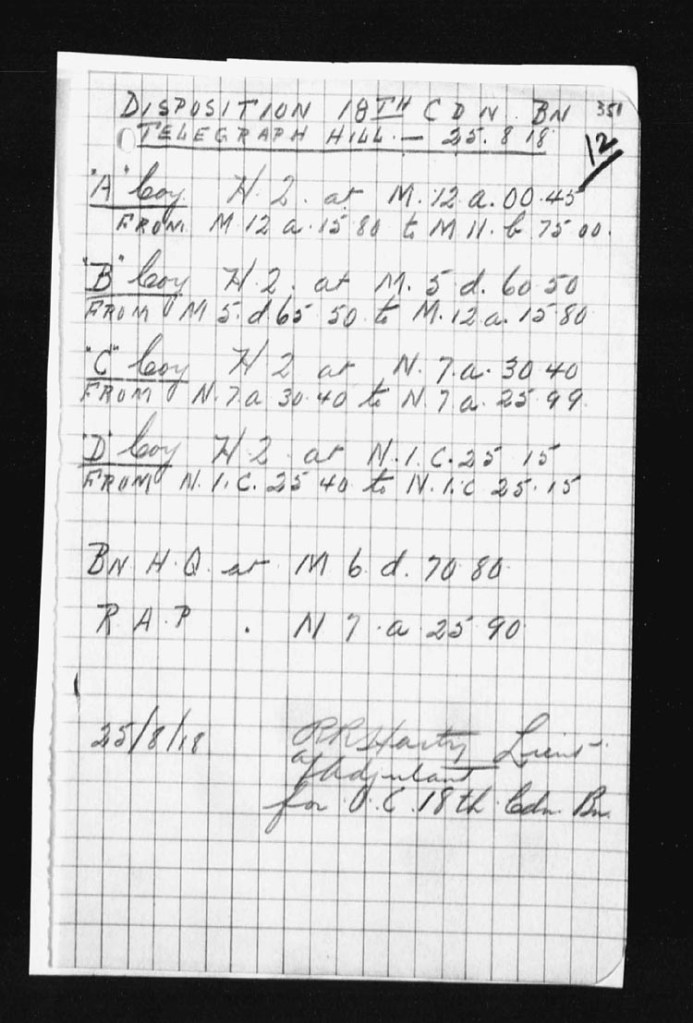 DISPOSITION 18TH CDN. BN 351
TELEGRAPH HILL — 25.8.18 12
"A" Coy H.Q. at M.12.a.00.45
FROM M 12 a.15 80 to M 11.b 75 00.
"B" Coy H.Q. at M. 5 d. 60 50
FROM M 5.d 65 50 to M.12 a. 15 80
"C" Coy H.Q at N. 7.a. 30 40
FROM N.7.a 30.40 to N.7 a. 25 99
"D" Coy H.Q. at N.1.C.25 15
FROM N.1.C.25 40 to N.1.C 25.15
BN H.Q. at M 6 d. 70 80
R.A.P . N 7.a.25 90
25/8/18 Lieut.
a/Adjutant
for O.C. 18th Cdn. Bn.